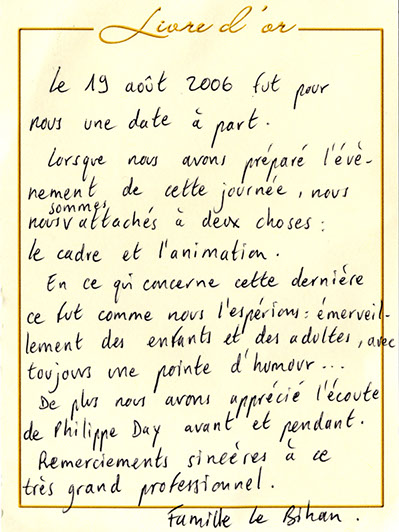 Livre d'or
Le 19 août 2006 fut pour
nous une date à part.
Lorsque nous avons préparé l'évè-
nement de cette journée, nous
sommes
nous attachés à deux choses :
le cadre et l'animation.
En ce qui concerne cette dernière
ce fut comme nous l'espérions : émerveil-
lement des enfants et des adultes, avec
toujours une pointe d'humour...
De plus nous avons apprécié l'écoute
de Philippe Day avant et pendant.
Remerciements sincères à ce
très grand professionnel.
Famille Le Bihan.